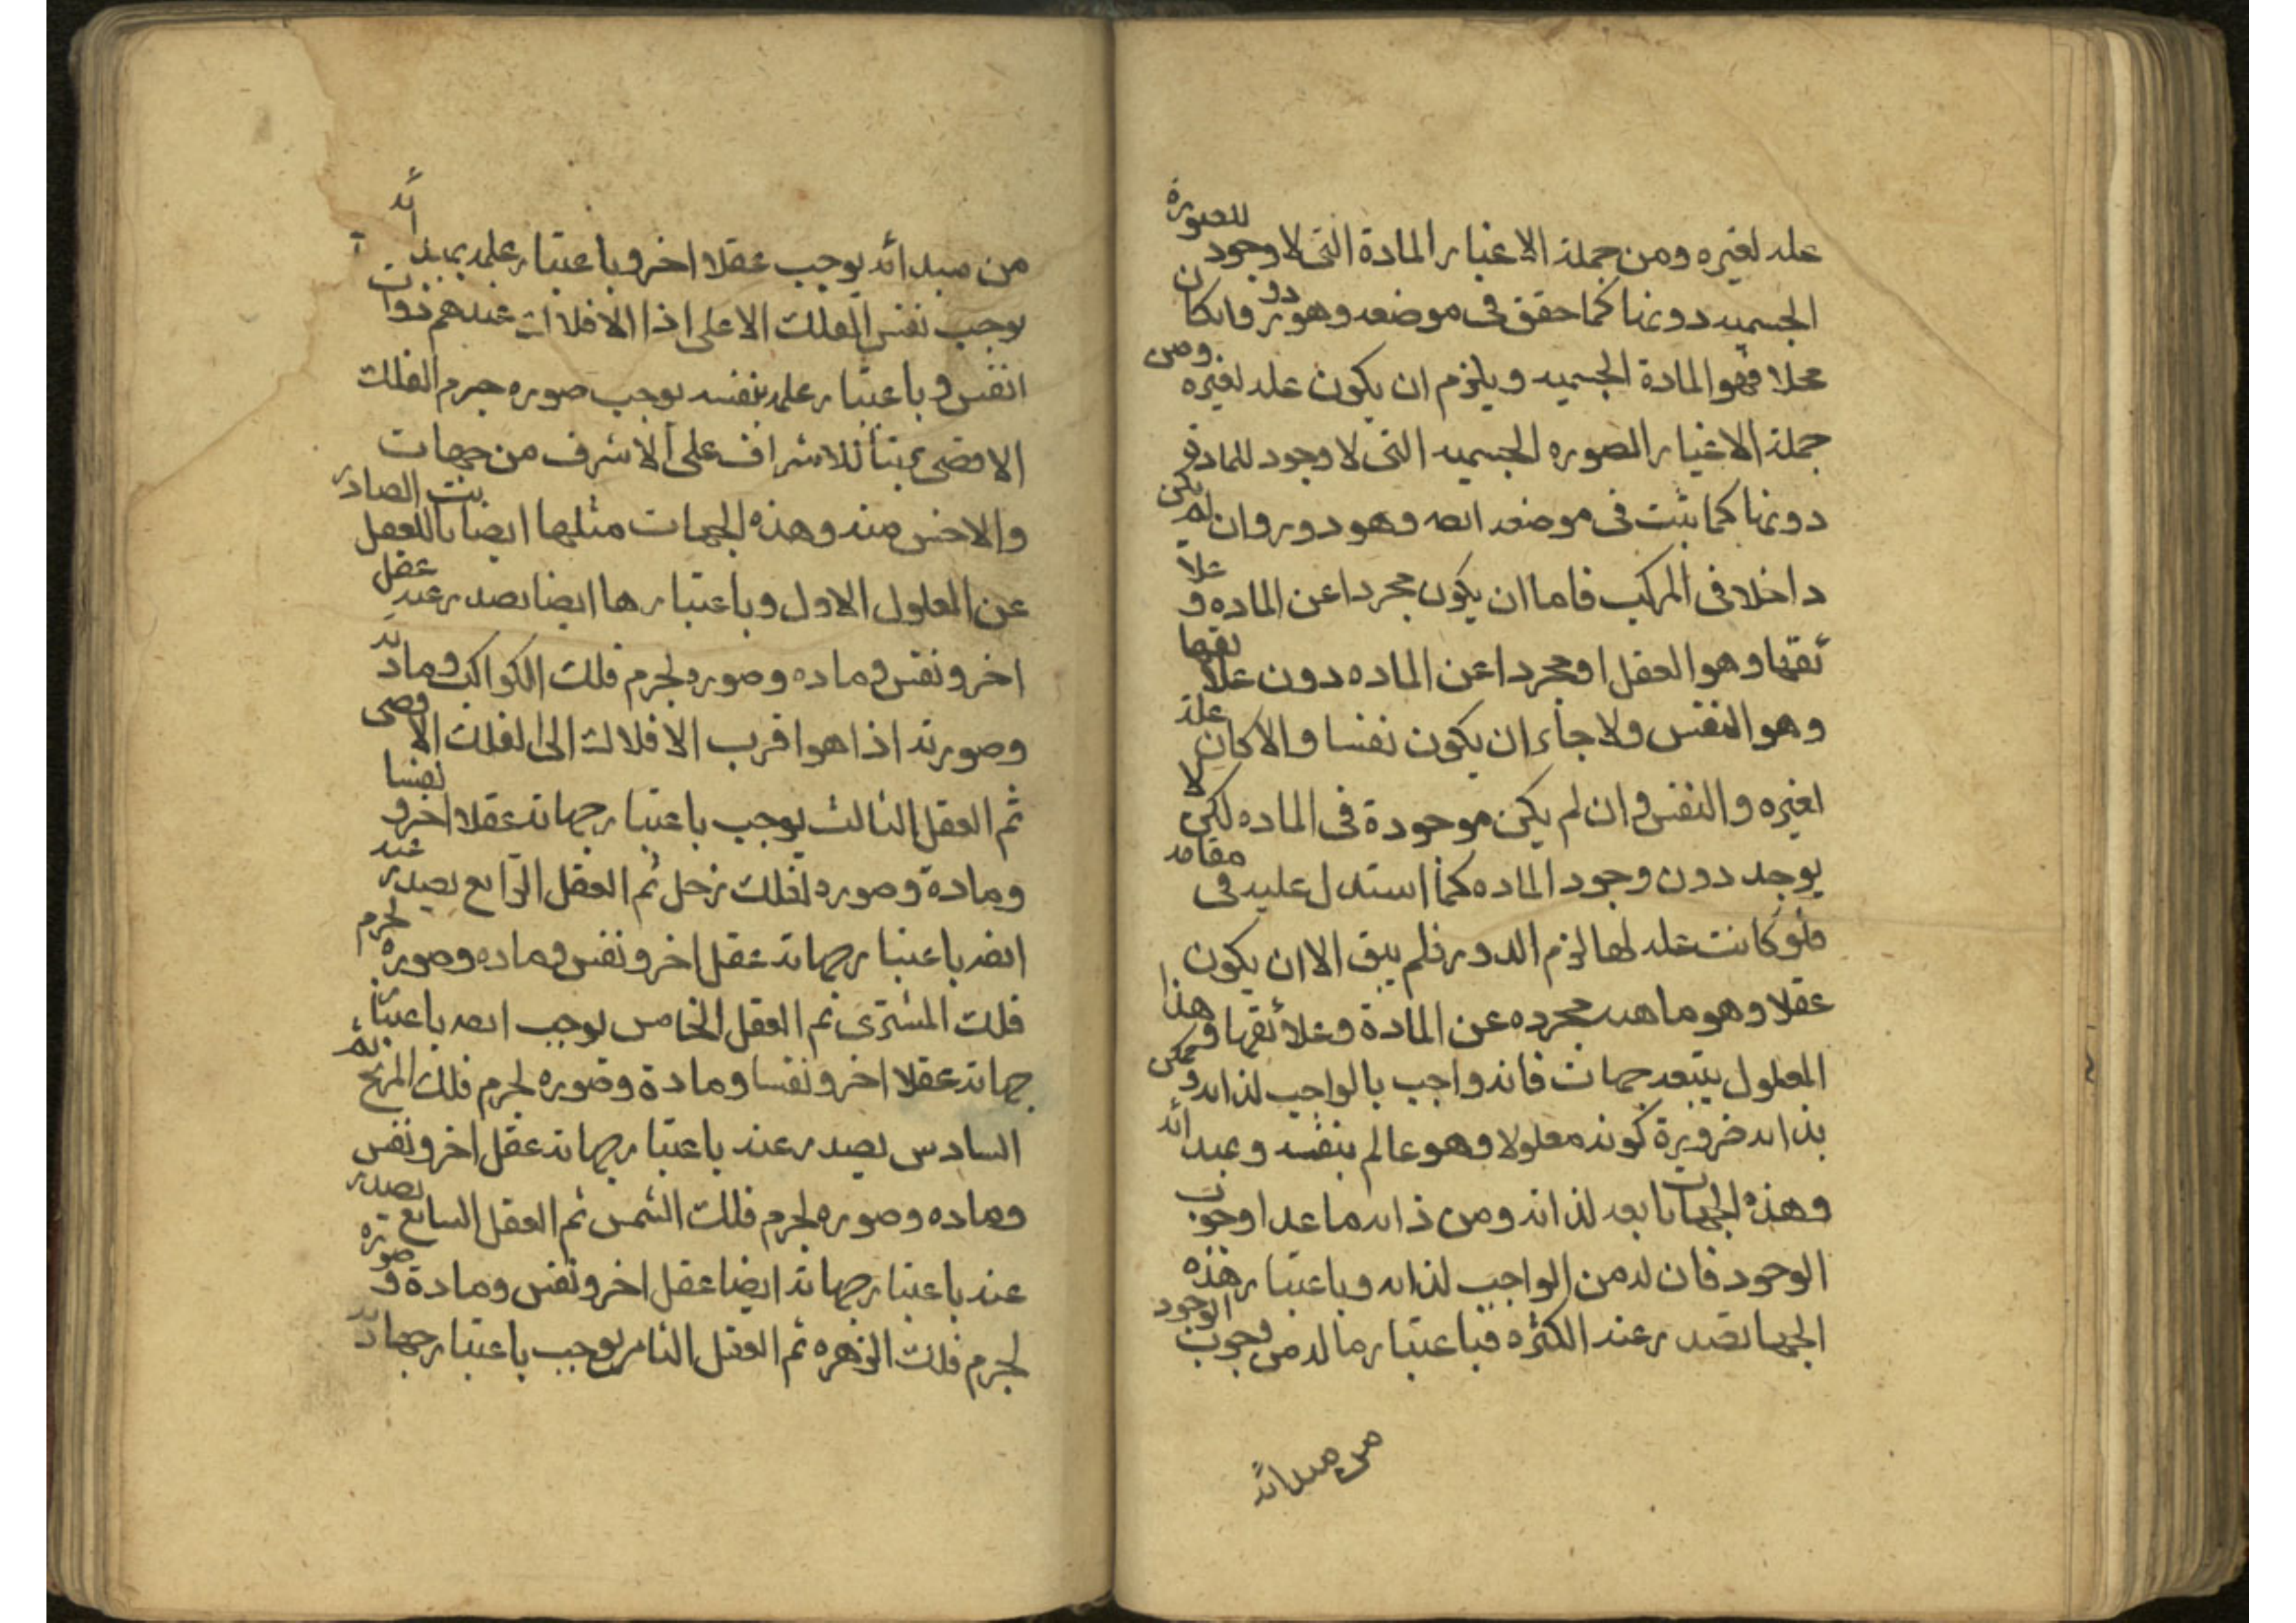 علة لغيره ومن جملة الاغيار المادة التى لا وجود للصورة
الجسميه دونها كما حقق فى موضعه وهو دور وان كان
محلا فهو المادة الجسميه ويلزم ان يكون علة لغيره ومن
جملة الاغيار الصوره الجسميه التى لا وجود للمادة
دونها كما ثبت فى موضعه ايضه وهو دور وان لم يكن
داخلا فى المركب فاما ان يكون مجردا عن الماده و علا
ئقها وهو العقل او مجردا عن الماده دون علائقها
وهو النفس ولا جاء ان يكون نفسا والا كان علة
لغيره والنفس وان لم يكن موجودة فى الماده لكن لا
يوجد دون وجود الماده كما استدل عليه فى مقامه
فلو كانت علة لها لزم الدور فلم يبق الا ان يكون
عقلا وهو ماهيه مجرده عن المادة وعلائقها و هذا
المعلول يتبعه جهات فانه واجب بالواجب لذاته و ممكن
بذاته ضرورة كونه معلولا وهو عالم بنفسه وبمبدائه
وهذه الجهات تابعه لذاته ومن ذاته ماعدا وجوب
الوجود فان له من الواجب لذاته وباعتبار هذه
الجهات تصدر عنه الكثره فباعتبار ما له من وجوب الوجود
من مبدائه
من مبدائه يوجب عقلا اخر وباعتبار علمه بمبدائه
يوجب نفس الفلك الاعلى اذا الافلاك عندهم ذوات
انفس وباعتبار علمه بنفسه يوجب صوره جرم الفلك
الاقصى للاشراف على الاشرف من جهات
والاخس منه وهذه الجهات مثلها ايضا ثابت للعقل الصادر
عن المعلول الاول وباعتبارها ايضا يصدر عنه عقل
اخر ونفس وماده وصوره لجرم فلك الكواكب ومادته
وصورته اذا هو اقرب الافلاك الى الفلك الاقصى
ثم العقل الثالث يوجب باعتبار جهاته عقلا اخر و نفسا
ومادة وصوره لفلك زحل ثم العقل الرابع يصدر عنه
ايضه باعتبار جهاته عقل اخر ونفس وماده وصورة لجرم
فلك المشترى ثم العقل الخامس يوجب ايضه باعتبار
جهاته عقلا اخر ونفسا ومادة وصوره لجرم فلك المريخ ثم
السادس يصدر عنه باعتبار جهاته عقل اخر ونفس
وماده وصوره لجرم فلك الشمس ثم العقل السابع يصدر
عنه باعتبار جهاته ايضا عقل اخر ونفس ومادة و صورة
لجرم فلك الزهره ثم العقل الثامن يوجب باعتبار جهاته